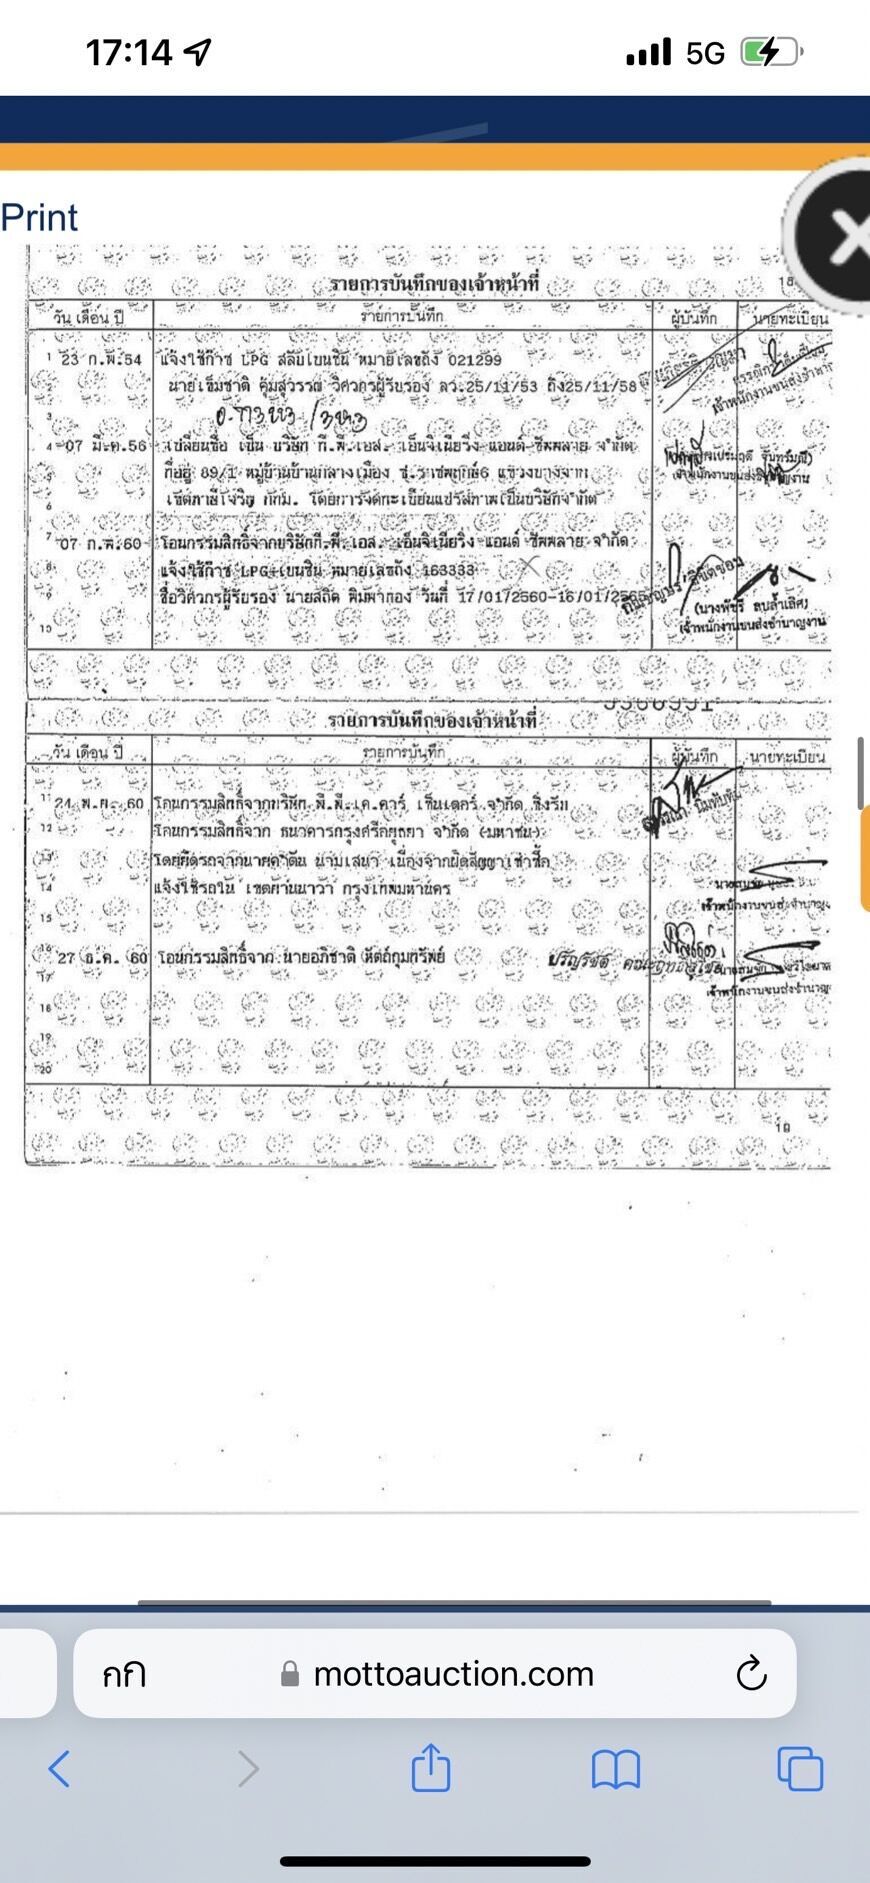 17:14
5G
Print
รายการบันทึกของเจ้าหน้าที่
18
วัน เดือน ปี
รายการบันทึก
ผู้บันทึก
นายทะเบียน
1 23 ก.พ.54 แจ้งใช้ก๊าซ LPG สลับเบนซิน หมายเลขถัง 021299
วิศวกรผู้รับรอง ลว.25/11/53 ถึง25/11/58
เจ้าพนักงานขนส่งชำนาญ
3
4 07 มี.ค.56 เปลี่ยนชื่อ เป็น บริษัท ที.พี.เอส. เอ็นจิเนียริ่ง แอนด์ ซัพพลาย จำกัด
5 ที่อยู่ 89/1 หมู่บ้านบ้านกลางเมือง ซ.ราชพฤกษ์6 แขวงบางจาก
6 เขตภาษีเจริญ กทม. โดยการจดทะเบียนแปรสภาพเป็นบริษัทจำกัด
7 07 ก.พ.60 โอนกรรมสิทธิ์จากบริษัทที.พี.เอส. เอ็นจิเนียริ่ง แอนด์ ซัพพลาย จำกัด
8 แจ้งใช้ก๊าซ LPG+เบนซิน หมายเลขถัง 163333
9 ชื่อวิศวกรผู้รับรอง นายสถิต พิมพาทอง วันที่ 17/01/2560-16/01/2565
10
เจ้าพนักงานขนส่งชำนาญงาน
รายการบันทึกของเจ้าหน้าที่
วัน เดือน ปี
รายการบันทึก
ผู้บันทึก
นายทะเบียน
11 24 พ.ค. 60 โอนกรรมสิทธิ์จากบริษัท พี.พี.เค.คาร์ เซ็นเตอร์ จำกัด ซึ่งรับ
12 โอนกรรมสิทธิ์จาก ธนาคารกรุงศรีอยุธยา จำกัด (มหาชน)
13 โดยยึดรถจากนายคำตัน นามเสนา เนื่องจากผิดสัญญาเช่าซื้อ
14 แจ้งใช้รถใน เขตยานนาวา กรุงเทพมหานคร
15
เจ้าพนักงานขนส่งชำนาญง
16 27 ธ.ค. 60 โอนกรรมสิทธิ์จาก นายอภิชาติ หัตถ์กุมทรัพย์
17
18
19
20
เจ้าพนักงานขนส่งชำนาญ
19
กก
mottoauction.com